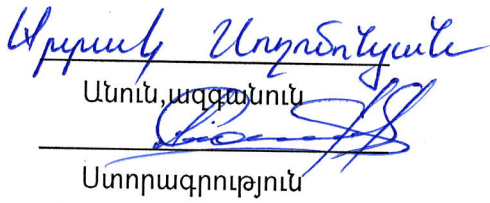 Արրակ Սողոմոնյան
Անուն,ազգանուն
Ստորագրություն